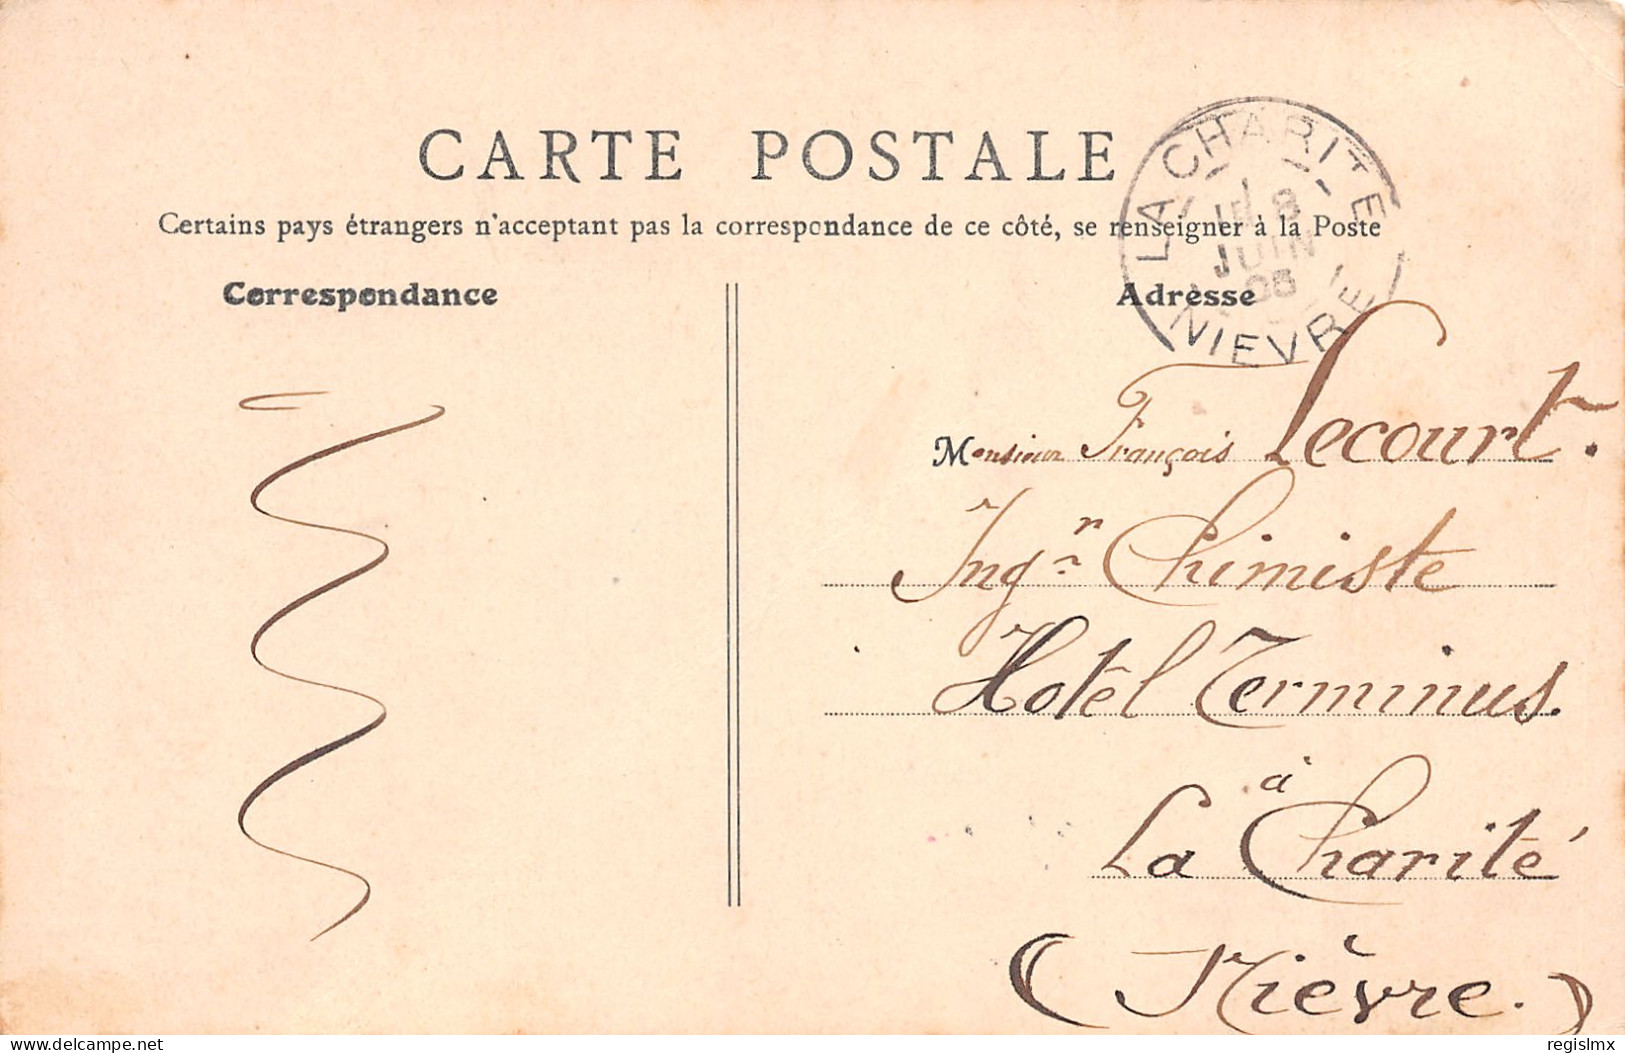 CARTE POSTALE
Certains pays étrangers n'acceptant pas la correspondance de ce côté, se renseigner à la Poste
Correspondance
Adresse
LA CHARITE
8
JUIN
NIEVRE
Monsieur François Lecourt.
Ingr Chimiste
Hotel Terminus.
à
La Charité
(Nièvre.)
delcampe.net
regislmx